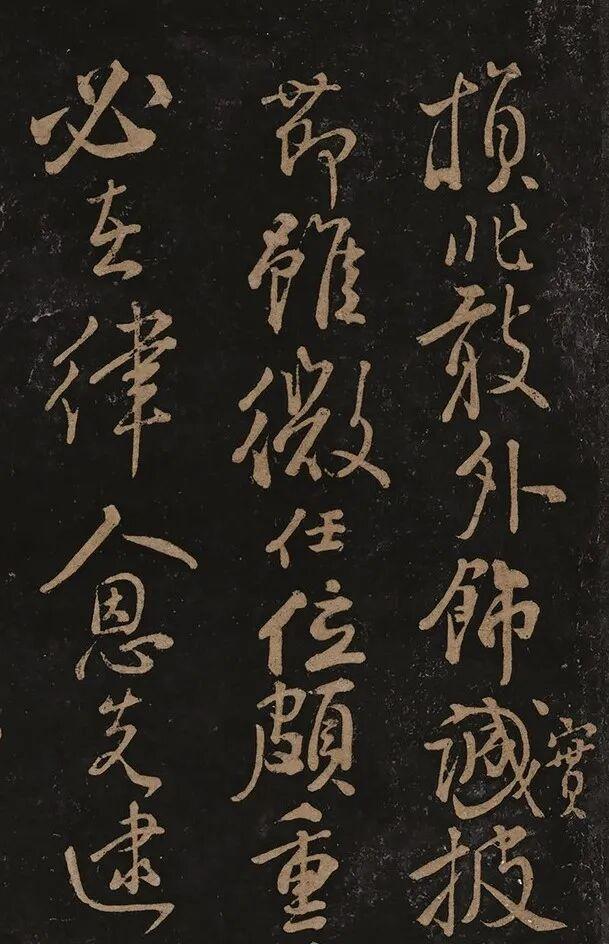 損非敢外飾誠實披
節雖微任位頗重
必在律人恩先逮